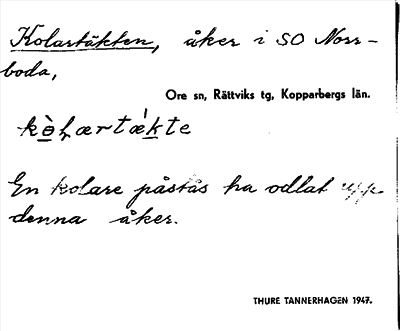 Kolartäkten, åker i SO Norr-
boda,
Ore sn, Rättviks tg, Kopparbergs län.
En kolare påstås ha odlat upp
denna åker.
THURE TANNERHAGEN 1947.